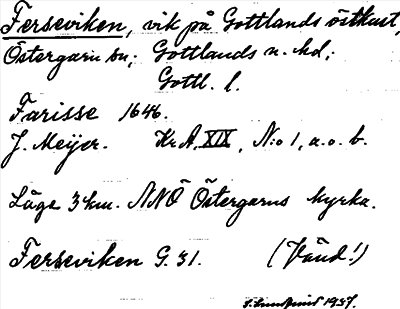 Ferseviken, vik på Gottlands östkust,
Östergarn sn; Gottlands n. hd;
Gottl. l.
Farisse 1646.
J. Meijer. Kr. A. XIX, N:o 1, a.o. b.
Läge 3 km. NNÖ Östergarns kyrka.
Ferseviken G. 31. (Vänd!)
1937.